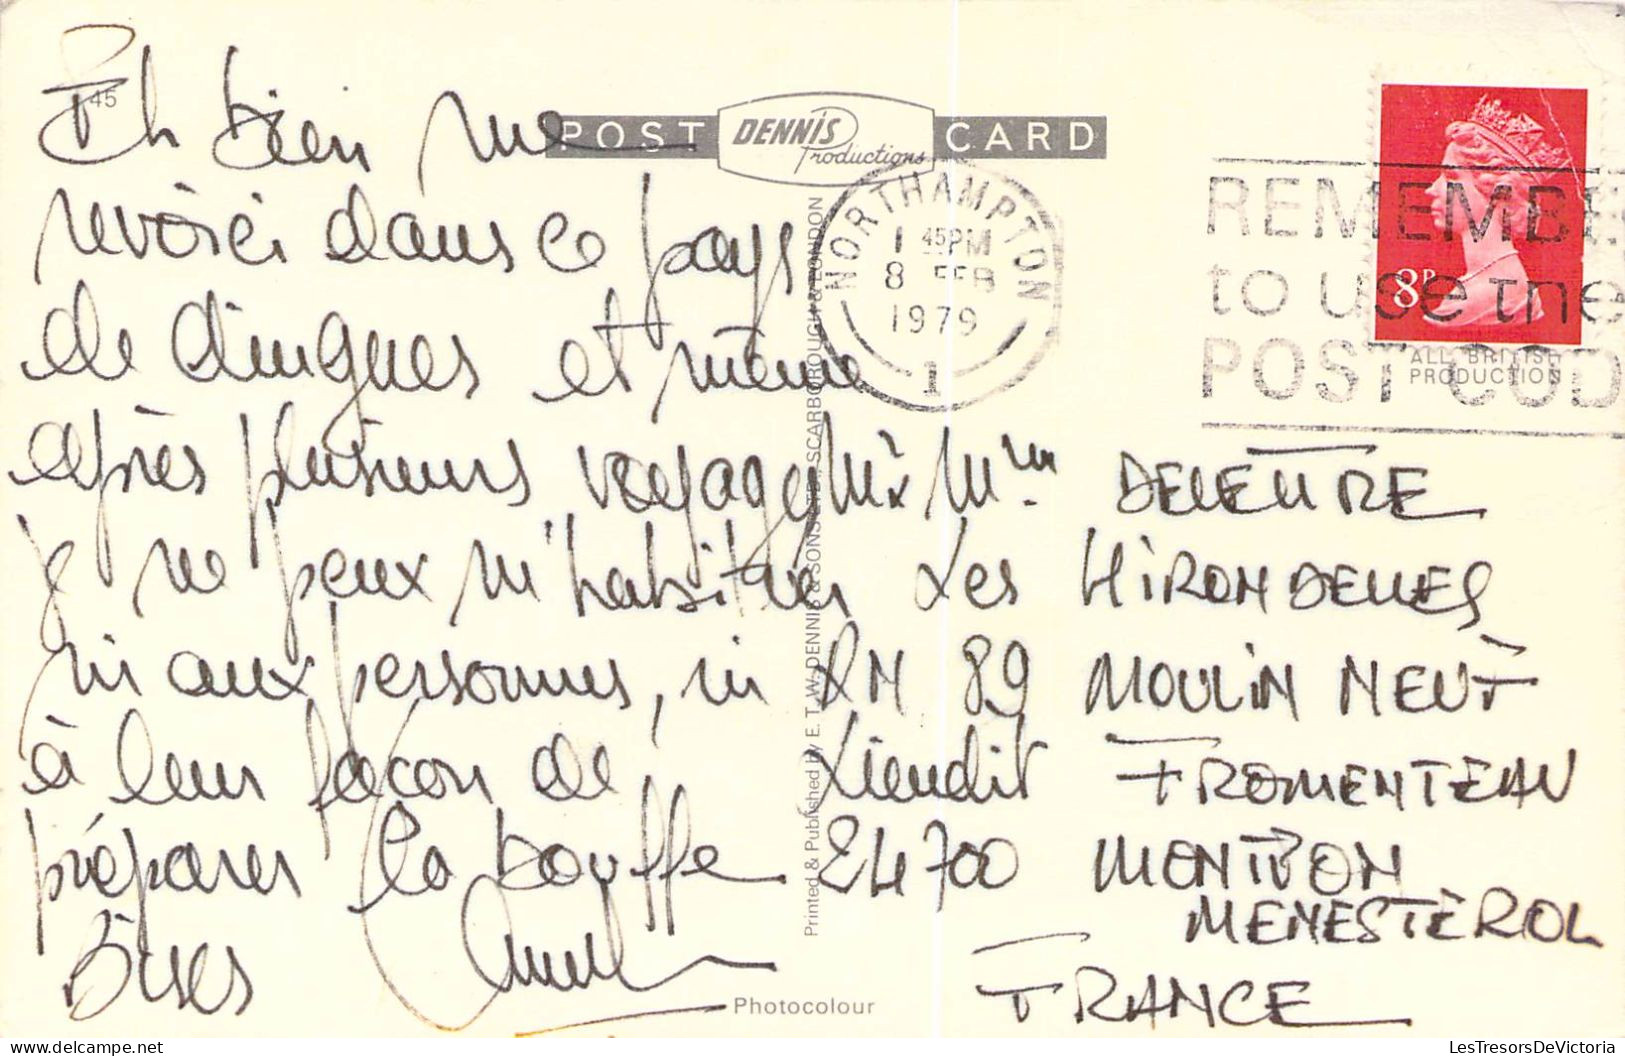 45
POST DENNIS Productions CARD
Eh bien me
revoici dans ce pays
de dingues et même
après plusieurs voyages
je ne peux m'habituer
ni aux personnes, ni
à leur façon de
préparer la bouffe
Bises
NORTHAMPTON
1 45PM
8 FEB
1979
1
REMEMBE
to use the
POST COD
8P
ALL BRITISH
PRODUCTION
Mr x Mme DELETTRE
Les HIRONDELLES
RN 89 MOULIN NEUF
Lieudit FROMENTEAU
24700 MONTPON
MENESTEROL
FRANCE
Printed & Published by E. T. W. DENNIS & SONS LTD., SCARBOROUGH & LONDON
Photocolour
LesTresorsDeVictoria.com